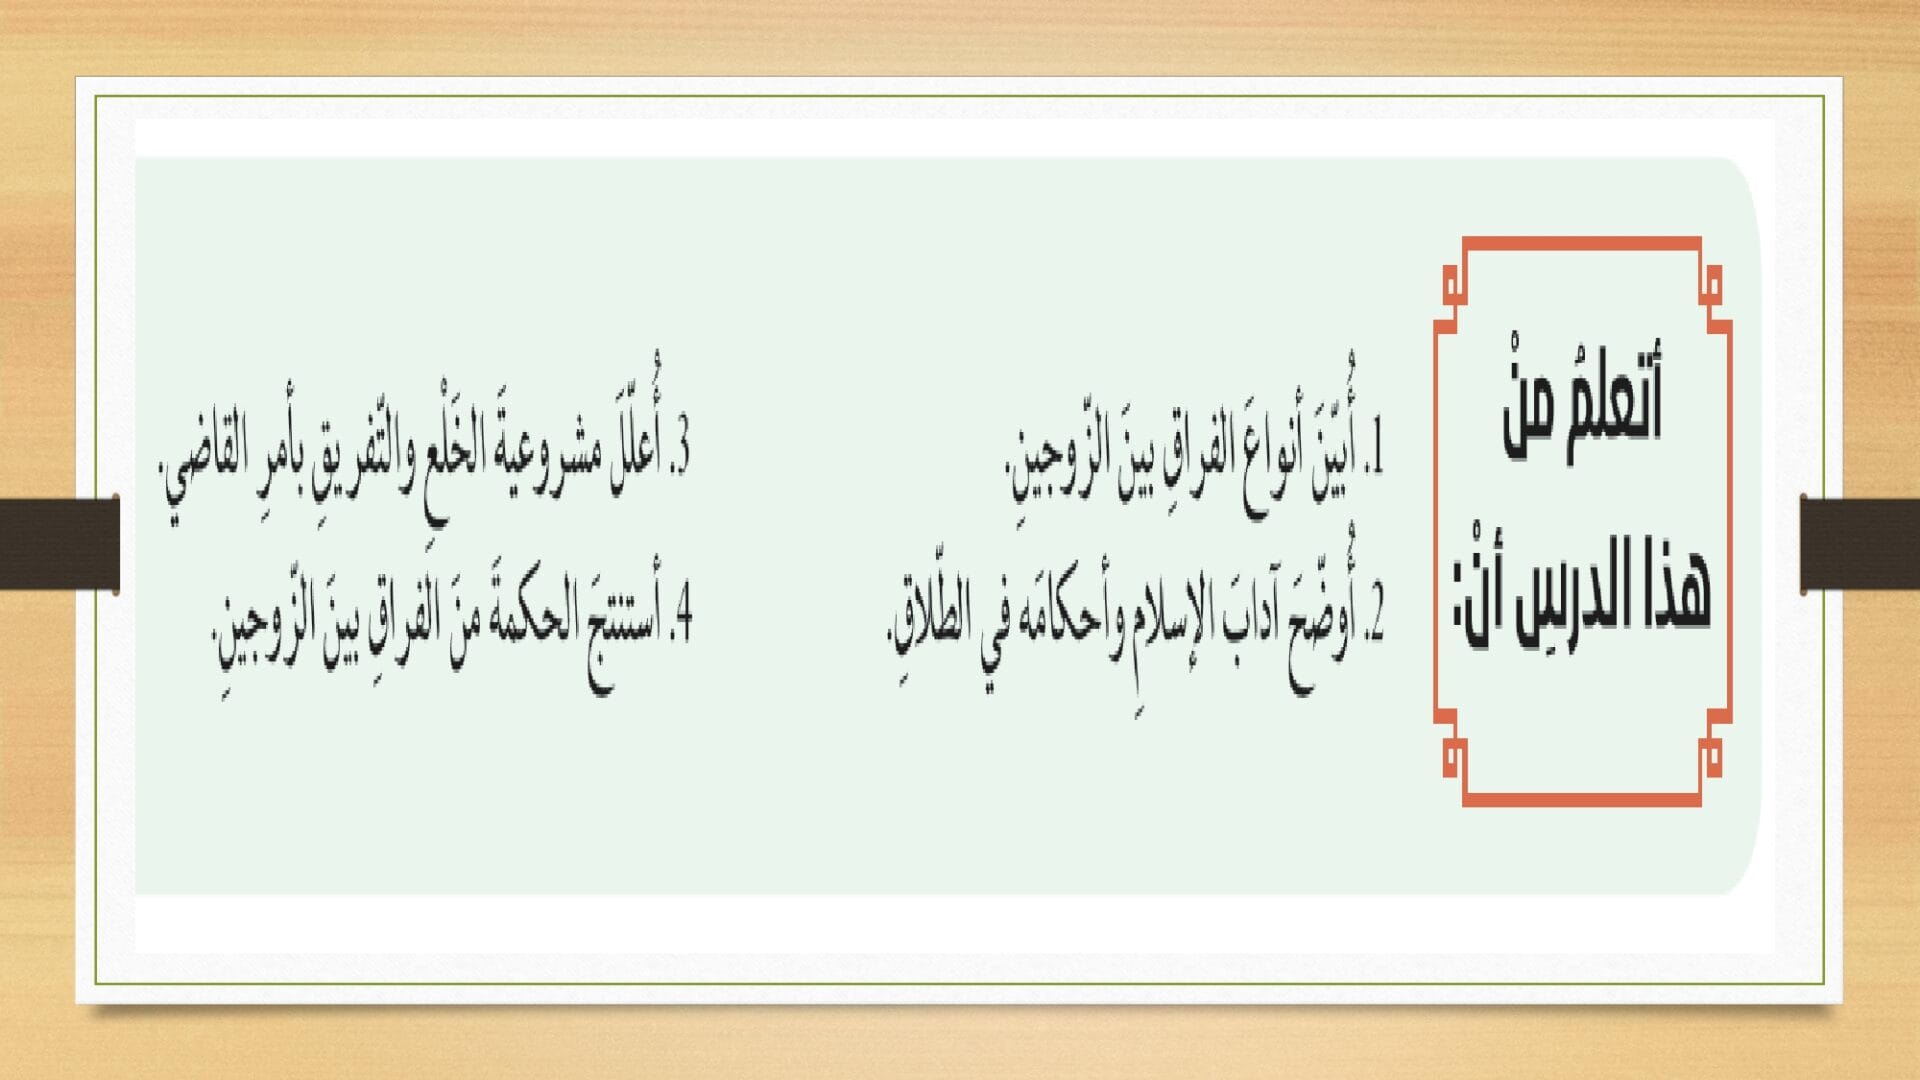 أتعلمُ منْ
هذا الدرسِ أنْ:
1. أُبيّنَ أنواعَ الفراقِ بينَ الزّوجينِ.
2. أُوضّحَ آدابَ الإسلامِ وأحكامَه في الطّلاقِ.
3. أُعلّلَ مشروعيةَ الخَلْعِ والتّفريقِ بأمرِ القاضي.
4. أستنتجَ الحكمةَ منَ الفراقِ بينَ الزّوجينِ.